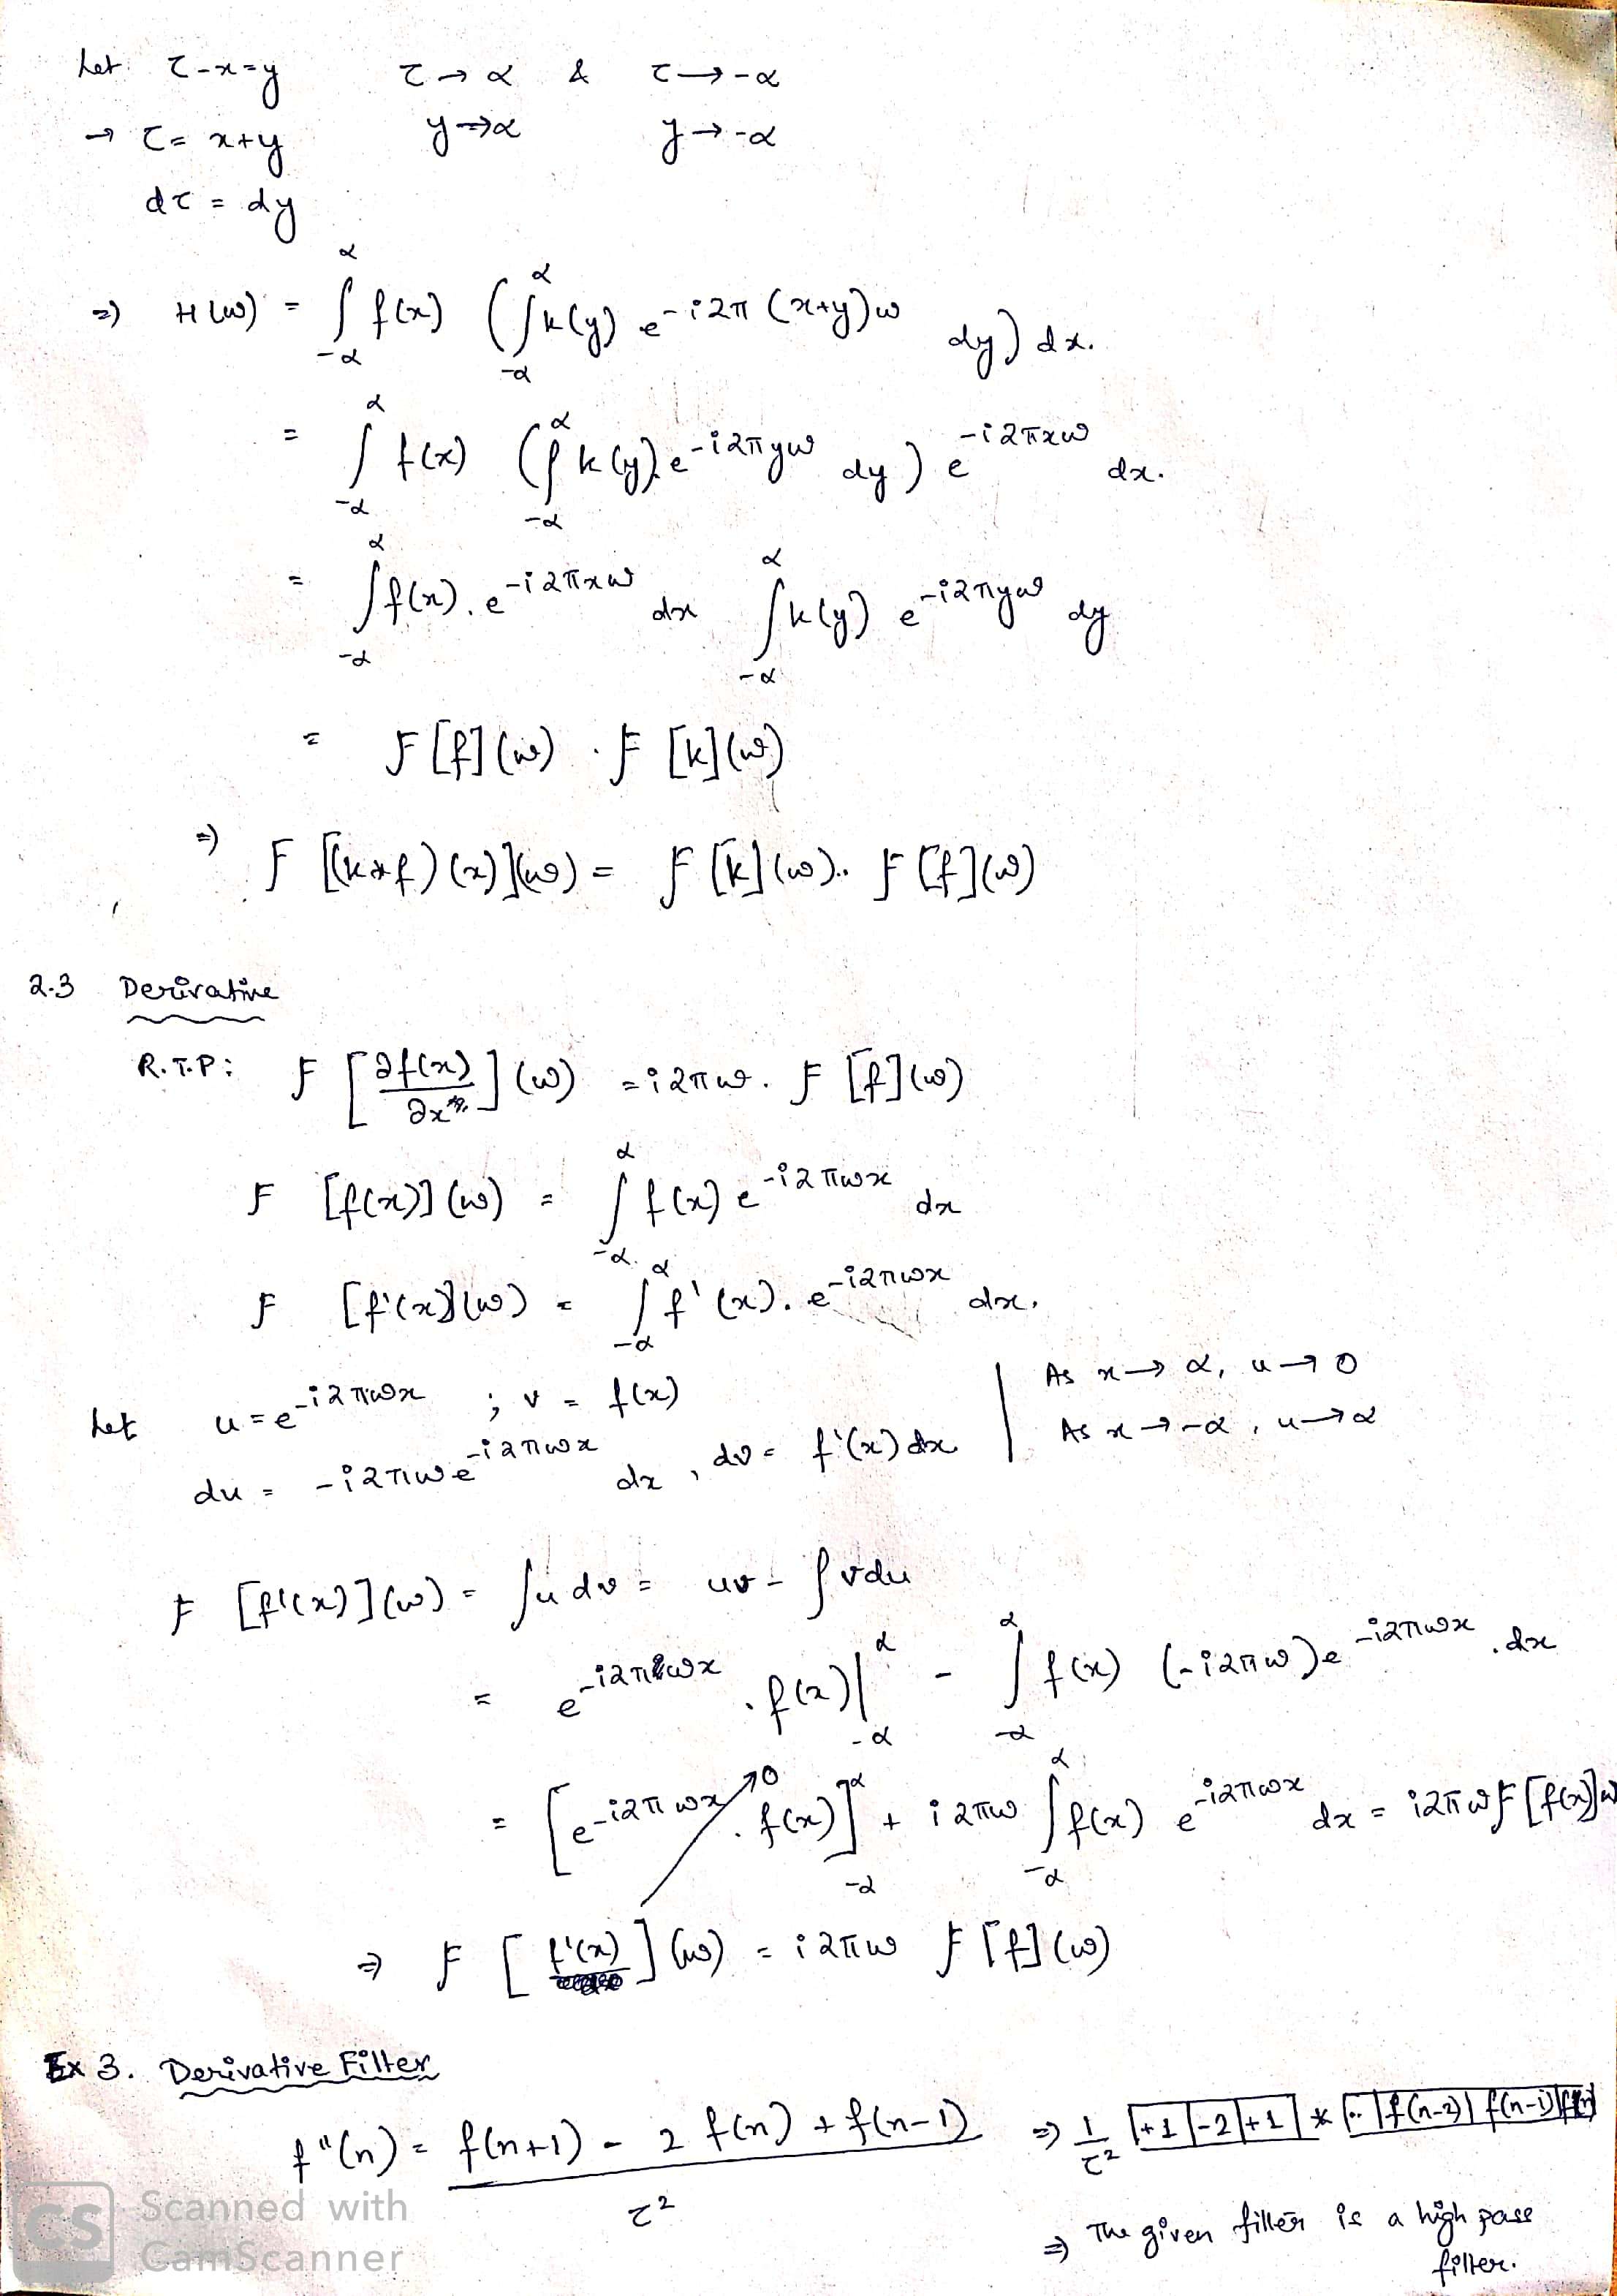 Let τ-x=y τ→α & τ→-α
→ τ= x+y y→α y→-α
dτ = dy
⇒ H(ω) = ∫_{-α}^{α} f(x) (∫_{-α}^{α} k(y) e^{-i2π(x+y)ω} dy) dx.
= ∫_{-α}^{α} f(x) (∫_{-α}^{α} k(y).e^{-i2πyω} dy) e^{-i2πxω} dx.
= ∫_{-α}^{α} f(x).e^{-i2πxω} dx ∫_{-α}^{α} k(y) e^{-i2πyω} dy
= F[f](ω) . F[k](ω)
⇒ F[(k*f)(x)](ω) = F[k](ω).. F[f](ω)
2.3 Derivative
R.T.P: F[∂f(x)/∂x](ω) = i2πω. F[f](ω)
F [f(x)](ω) = ∫_{-α}^{α} f(x) e^{-i2πωx} dx
F [f'(x)](ω) = ∫_{-α}^{α} f'(x). e^{-i2πωx} dx.
Let u=e^{-i2πωx} ; v = f(x) | As x→α, u→0
du = -i2πωe^{-i2πωx} dx , dv = f'(x)dx | As x→-α, u→α
F [f'(x)](ω) = ∫u dv = uv - ∫vdu
= e^{-i2πωx} .f(x)|_{-α}^{α} - ∫_{-α}^{α} f(x) (-i2πω)e^{-i2πωx} .dx
= [e^{-i2πωx} . f(x)]_{-α}^{α} →0 + i2πω ∫_{-α}^{α} f(x) e^{-i2πωx} dx = i2πωF[f(x)]ω
⇒ F [f'(x)](ω) = i2πω F[f](ω)
Ex 3. Derivative Filter
f''(n) = f(n+1) - 2 f(n) + f(n-1) / τ² ⇒ 1/τ² |+1|-2|+1| * |..|f(n-2)|f(n-1)|f(n)|
⇒ The given filter is a high pass
filter.
CS Scanned with
CamScanner